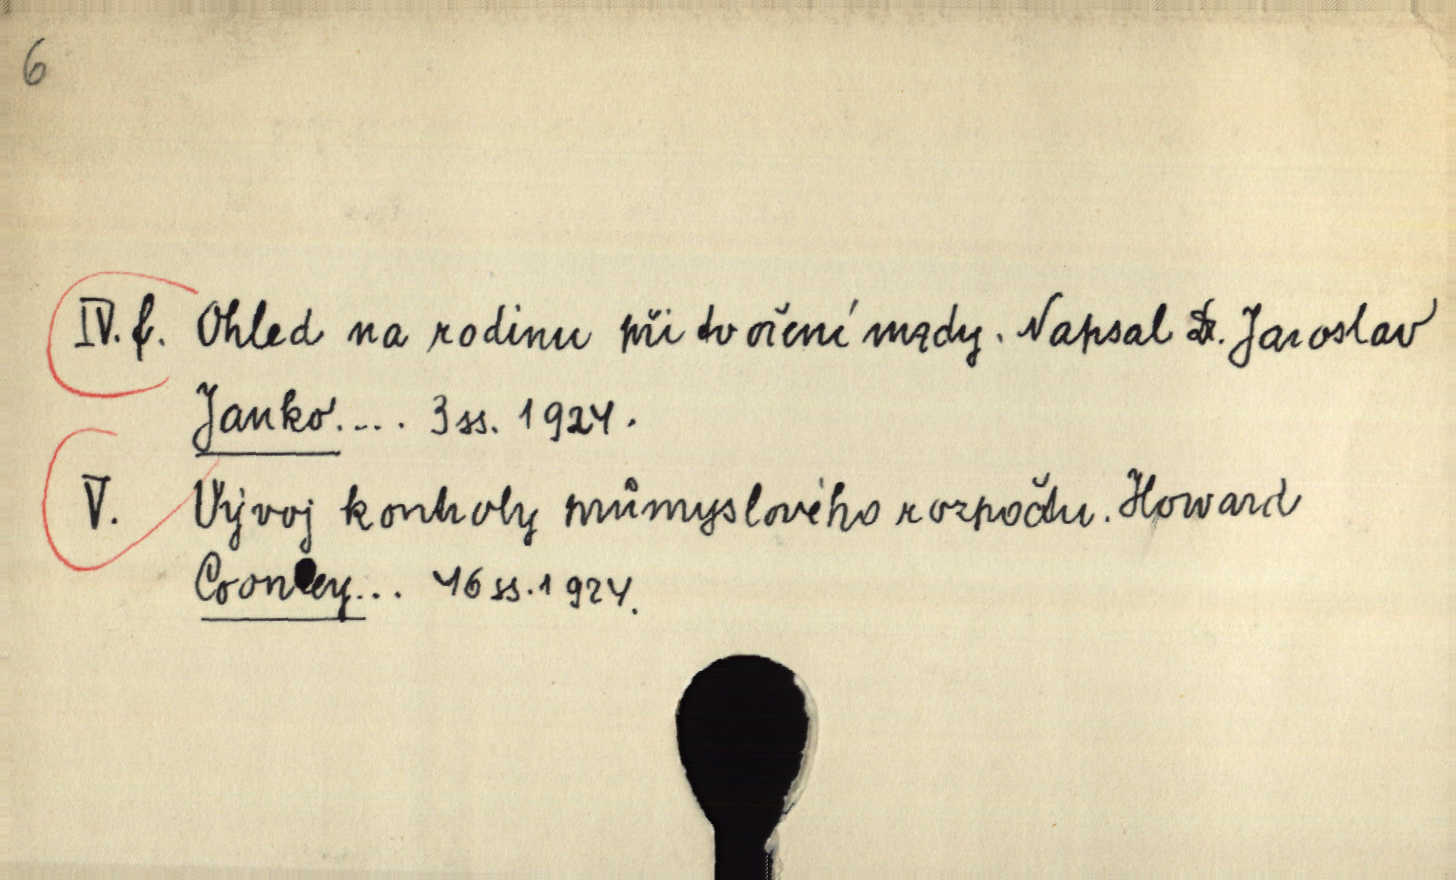 6
IV. f. Ohled na rodinu při tvoření mzdy. Napsal Dr. Jaroslav
Janko.... 3 ss. 1924.
V. Vývoj kontroly průmyslového rozpočtu. Howard
Coonley... 46 ss. 1924.